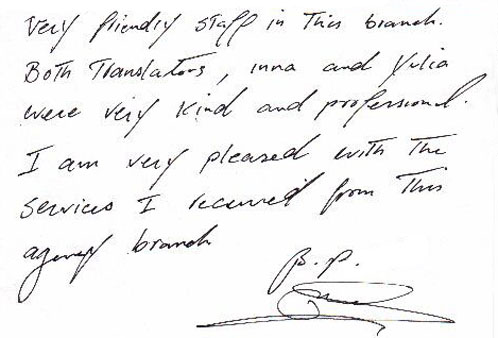 Very friendly staff in this branch.
Both Translators, inna and Yulia
were very kind and professional.
I am very pleased with the
services I received from this
agency branch
B.P.